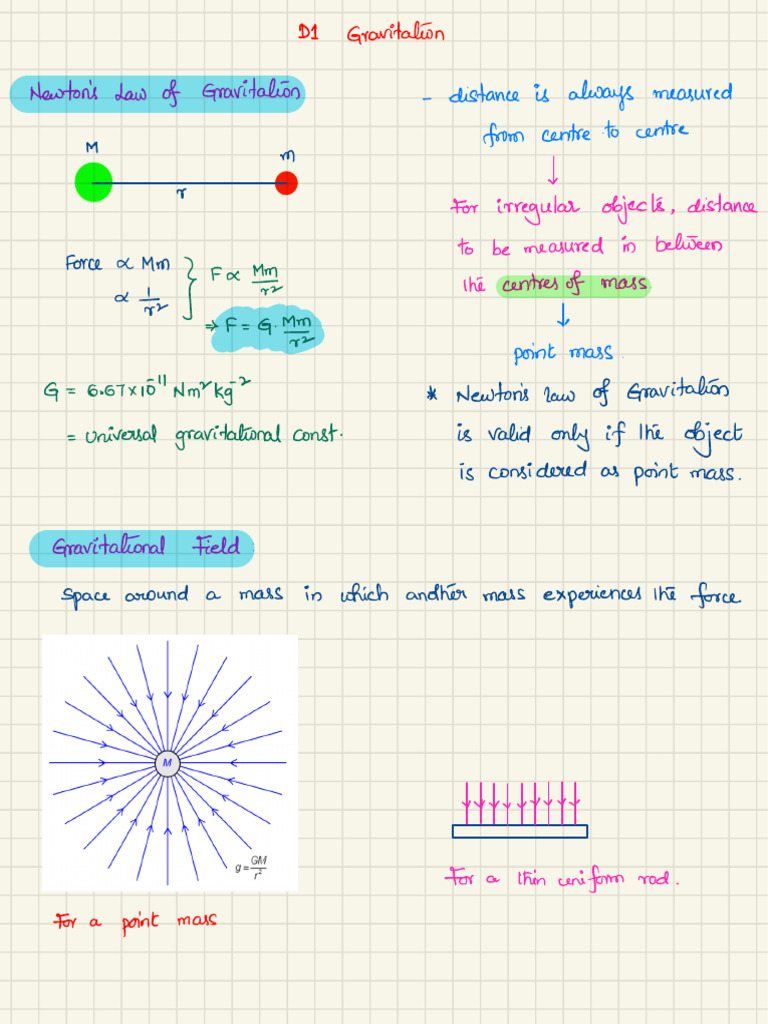 D1 Gravitation
Newton's Law of Gravitation
M
m
r
Force ∝ Mm
∝ 1/r²
F ∝ Mm/r²
⇒ F = G · Mm/r²
G = 6.67×10⁻¹¹ Nm² kg⁻²
= Universal gravitational const.
- distance is always measured
from centre to centre
↓
For irregular objects, distance
to be measured in between
the centres of mass
↓
point mass.
* Newton's law of Gravitation
is valid only if the object
is considered as point mass.
Gravitational Field
Space around a mass in which another mass experiences the force
M
g = GM/r²
For a point mass
For a thin uniform rod.